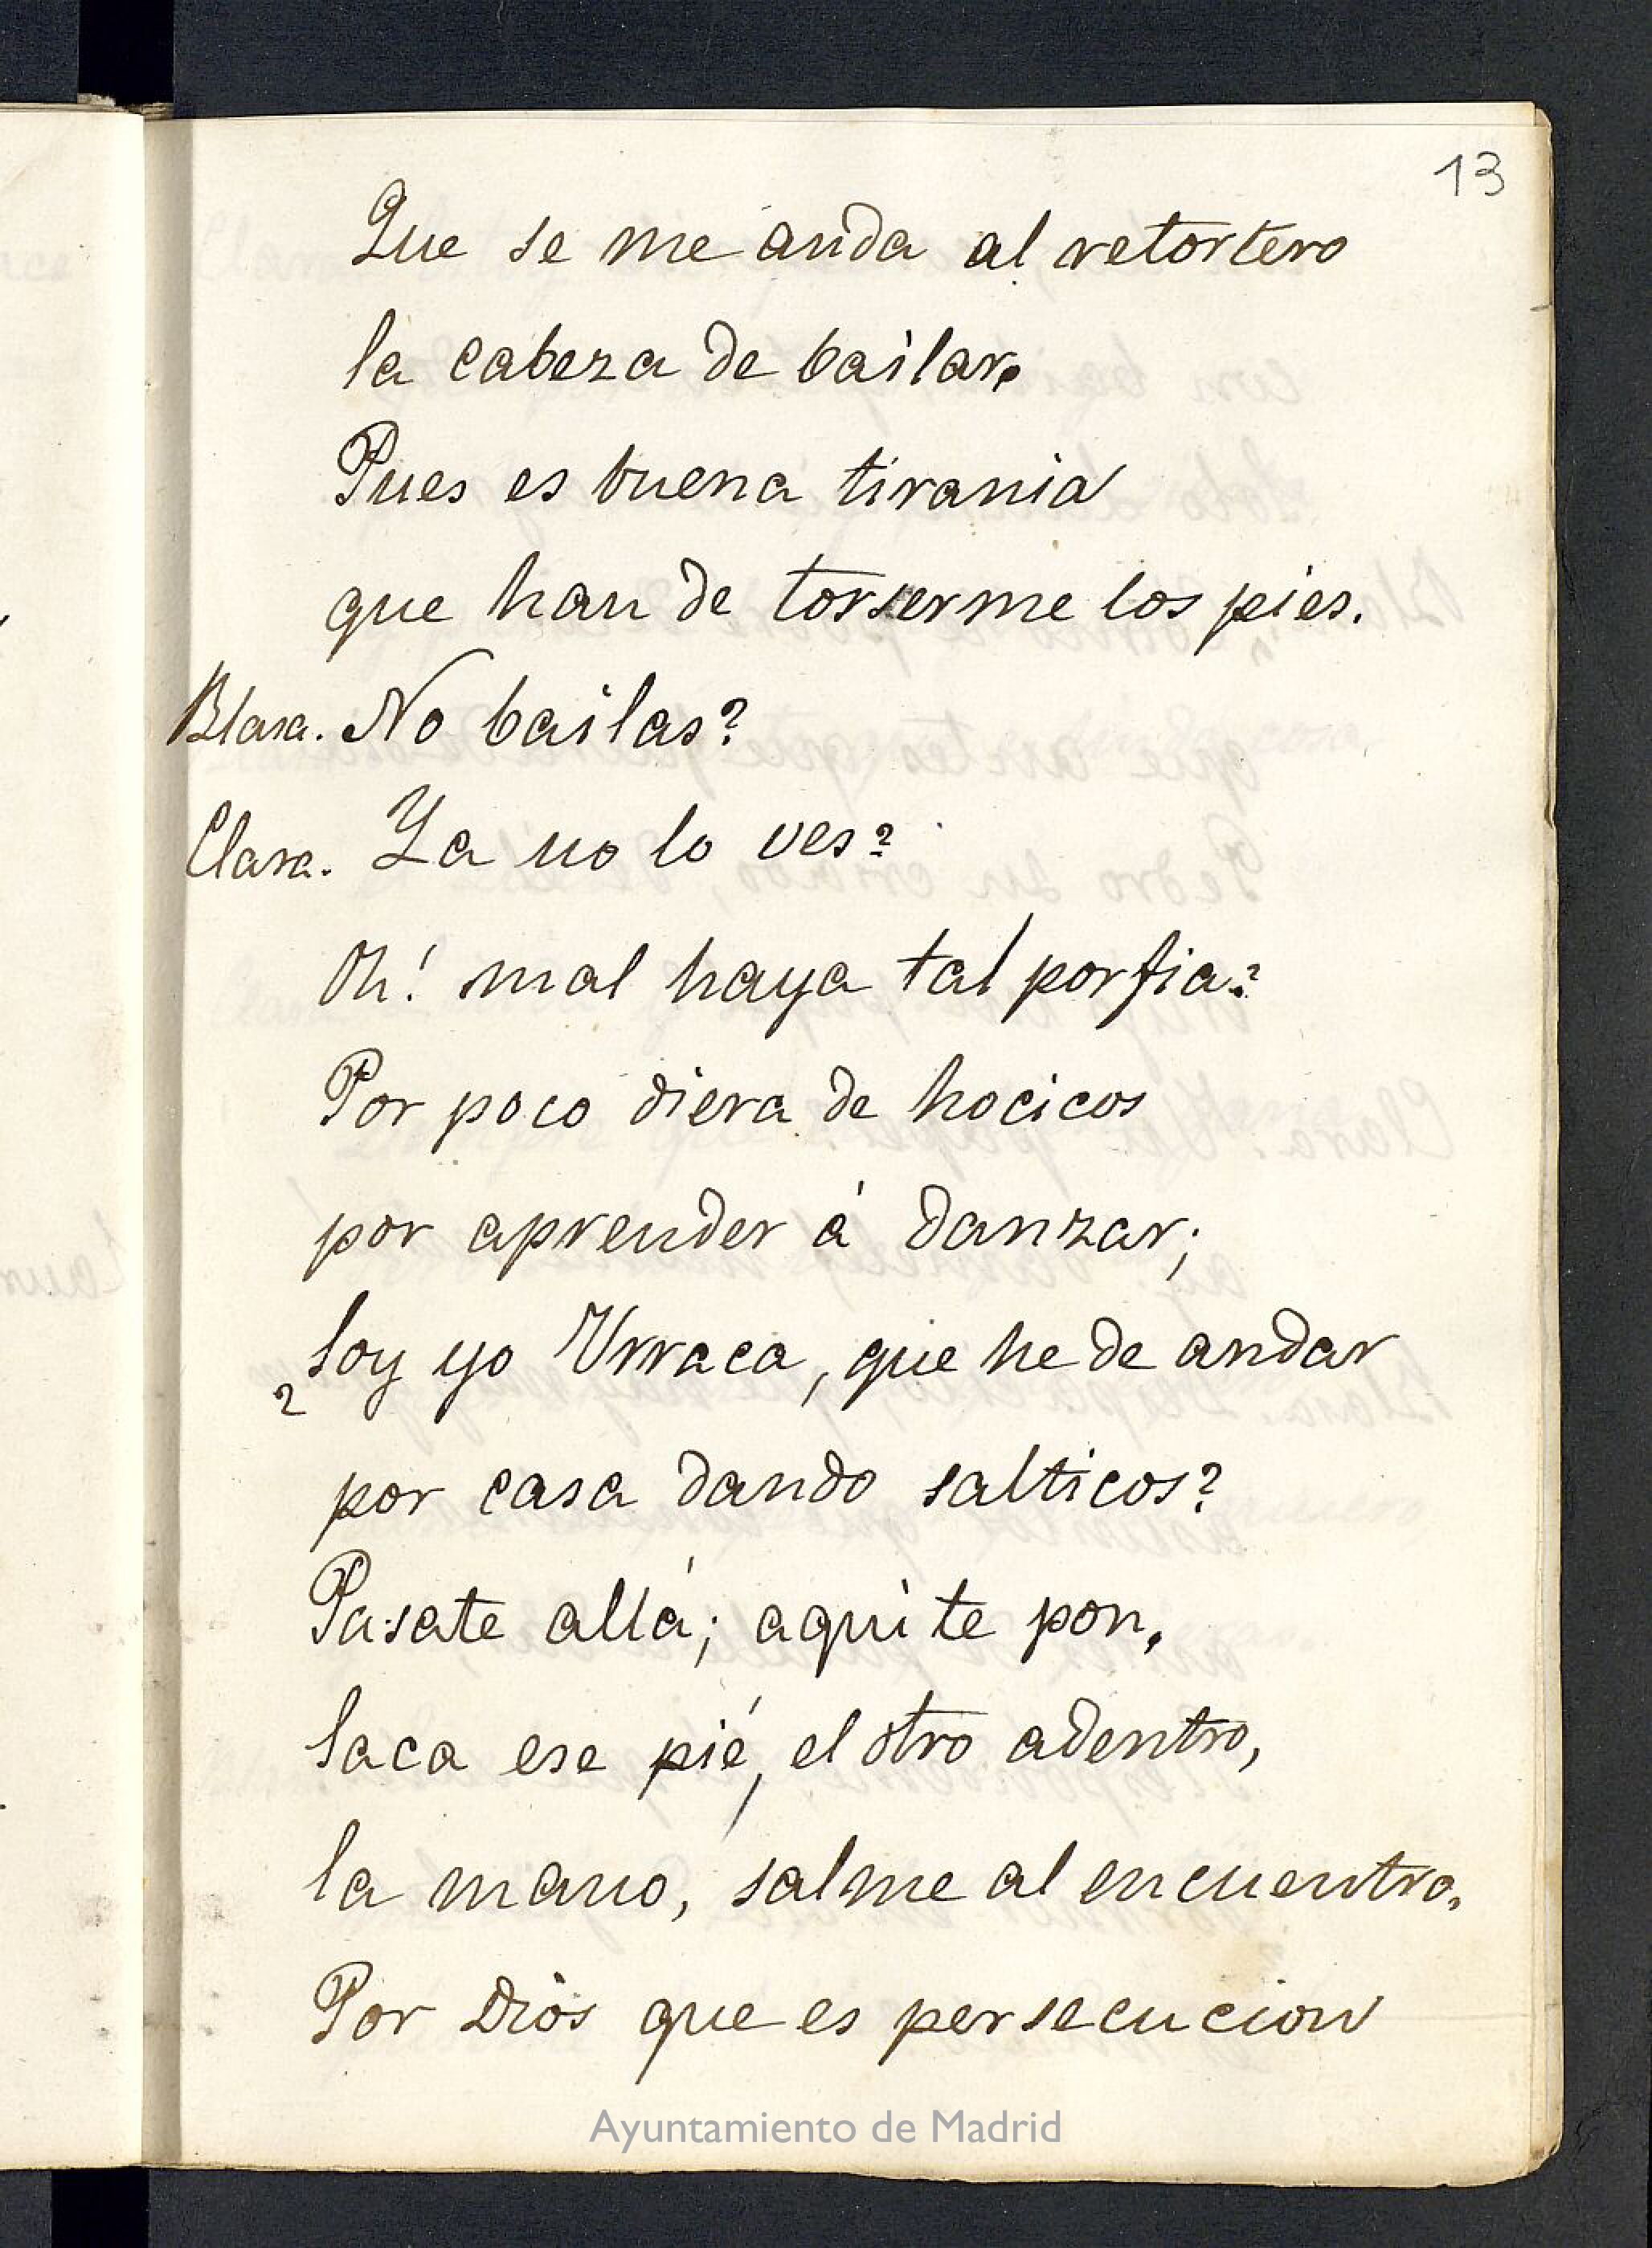 13
Que se me anda al retortero
la cabeza de bailar.
Pues es buena tirania
que han de torserme los pies.
Blasa. No bailas?
Clara. Ya no lo ves?
Oh! mal haya tal porfia?
Por poco diera de hocicos
por aprender á danzar;
¿Soy yo Urraca, que he de andar
por casa dando salticos?
Pasate allá; aqui te pon,
Saca ese pié, el otro adentro,
la mano, salme al encuentro,
Por Dios que es persecucion
Ayuntamiento de Madrid